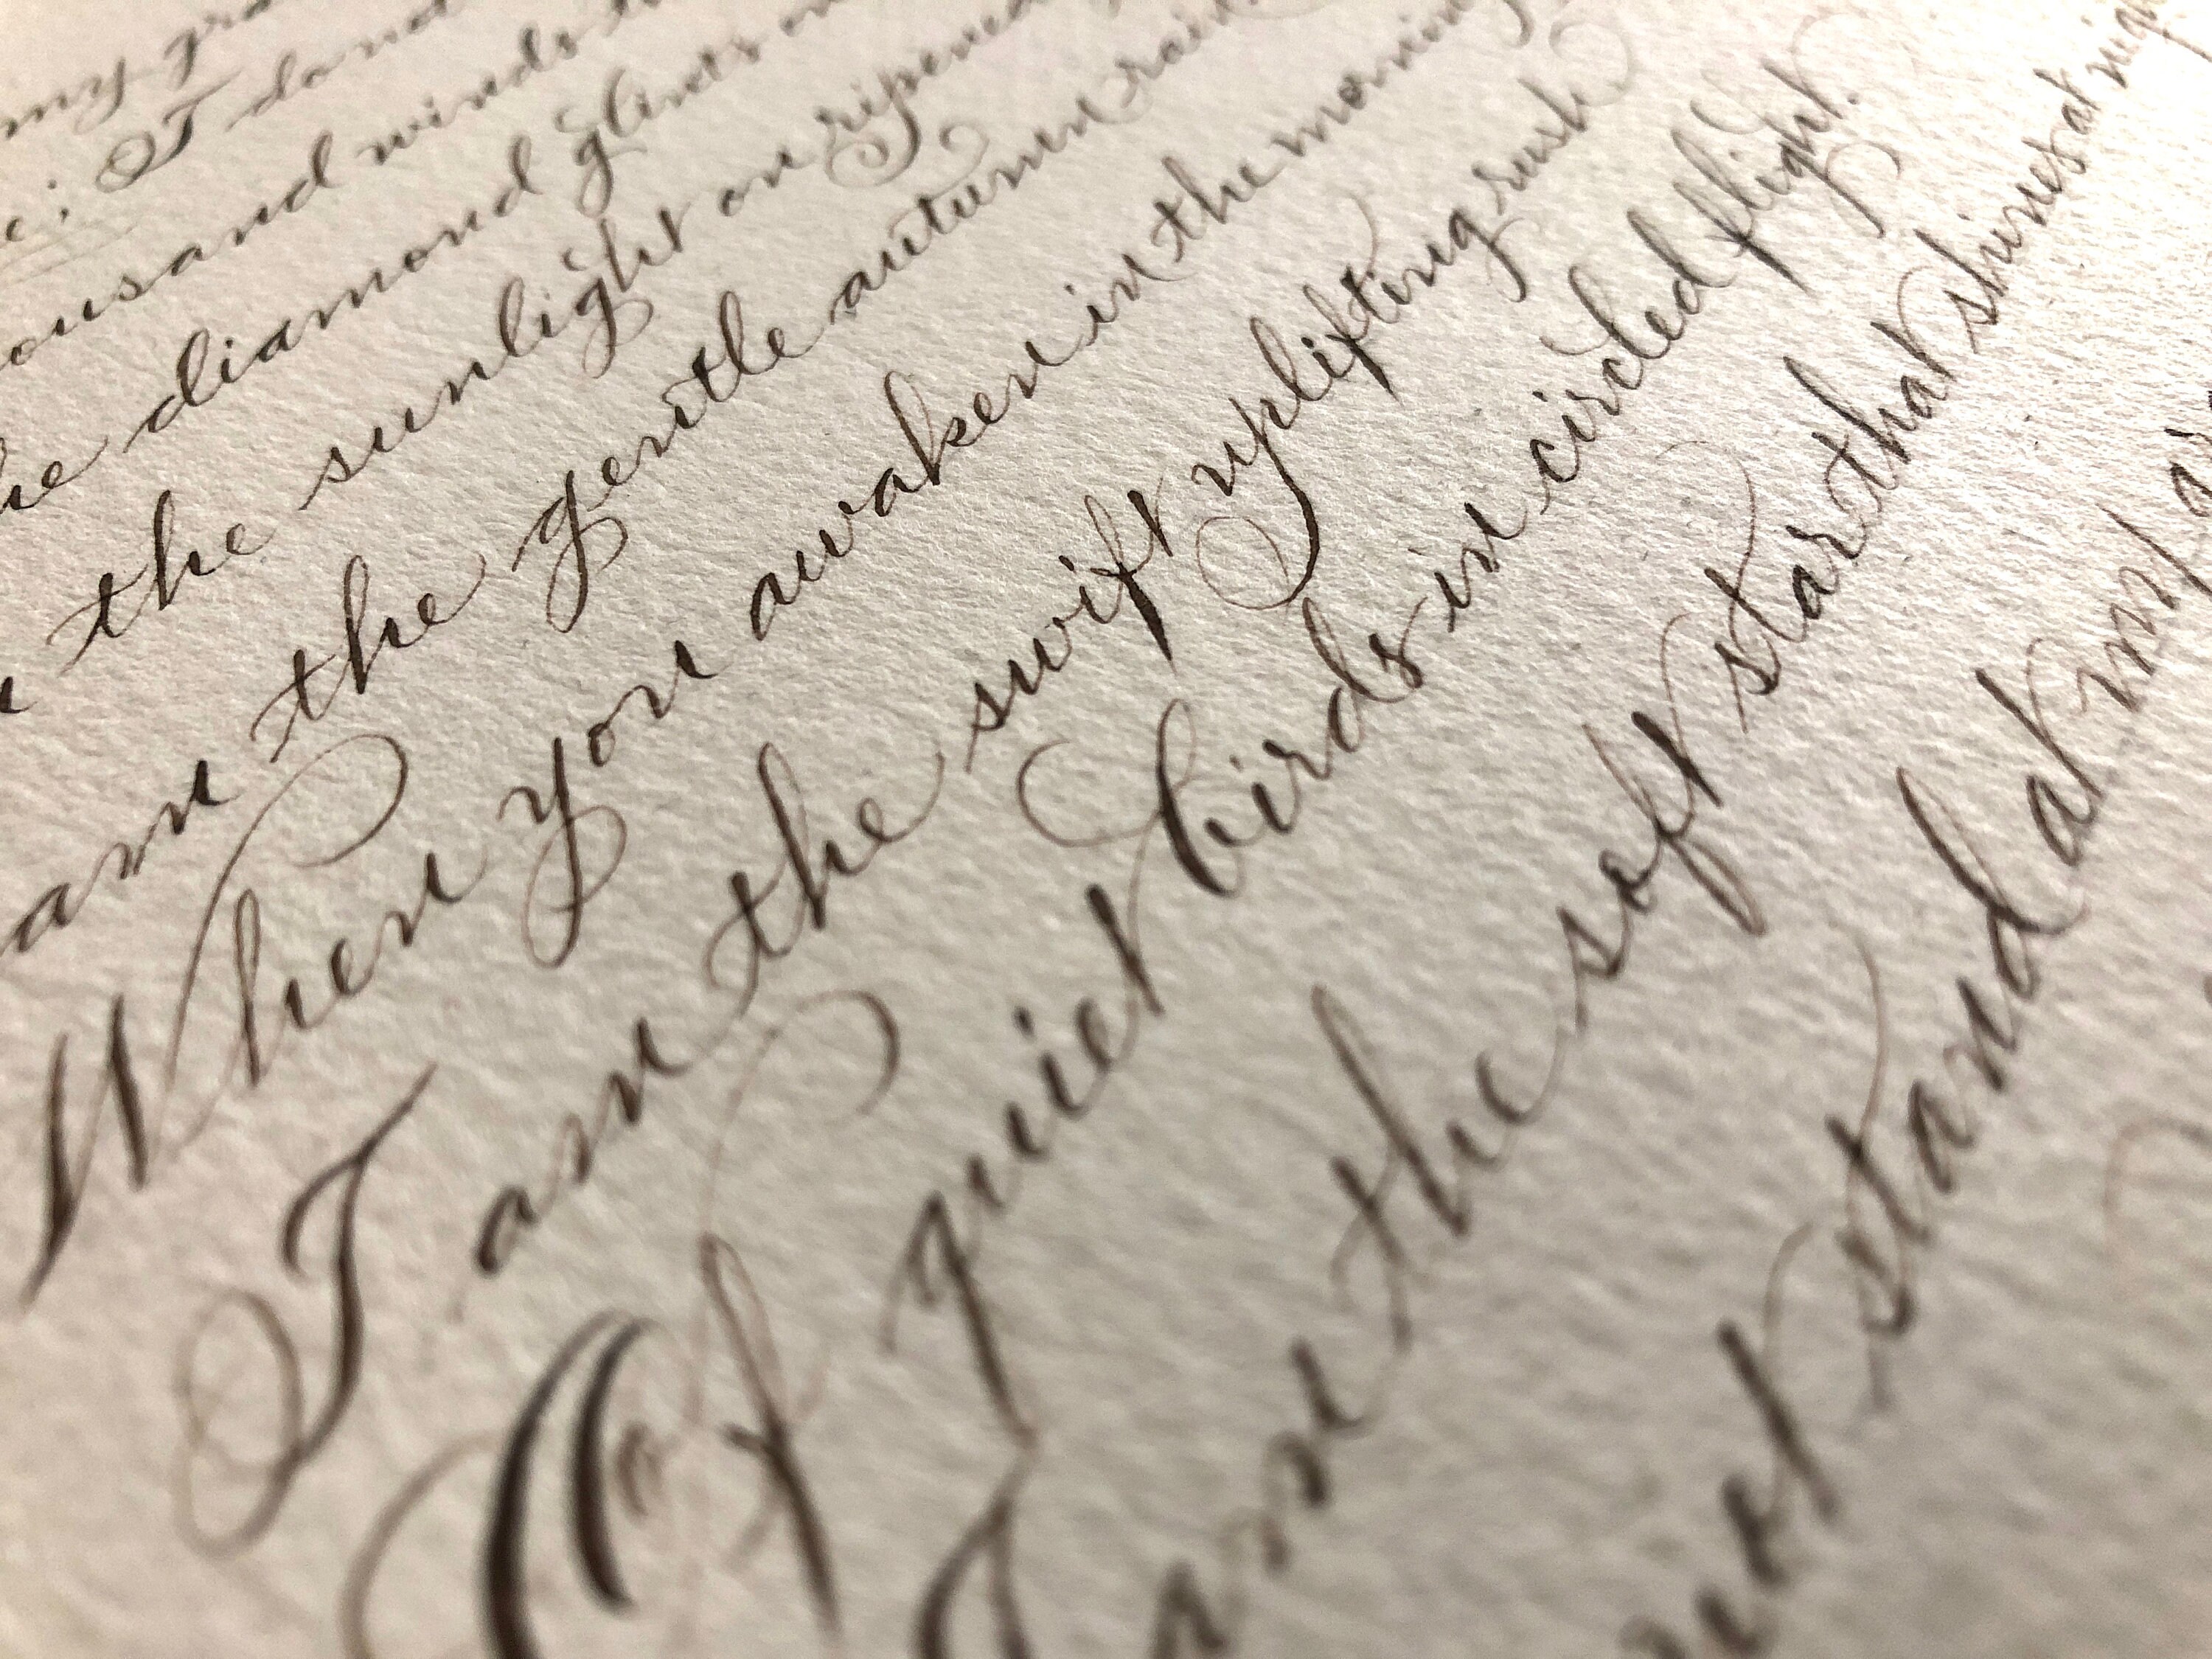 my gra
e; I do not
ousand winds t
he diamond glints on
the sunlight on ripened
am the gentle autumn rain.
When you awaken in the morning
I am the swift uplifting rush
Of quiet birds in circled flight.
I am the soft star that shines at nig
not stand at my